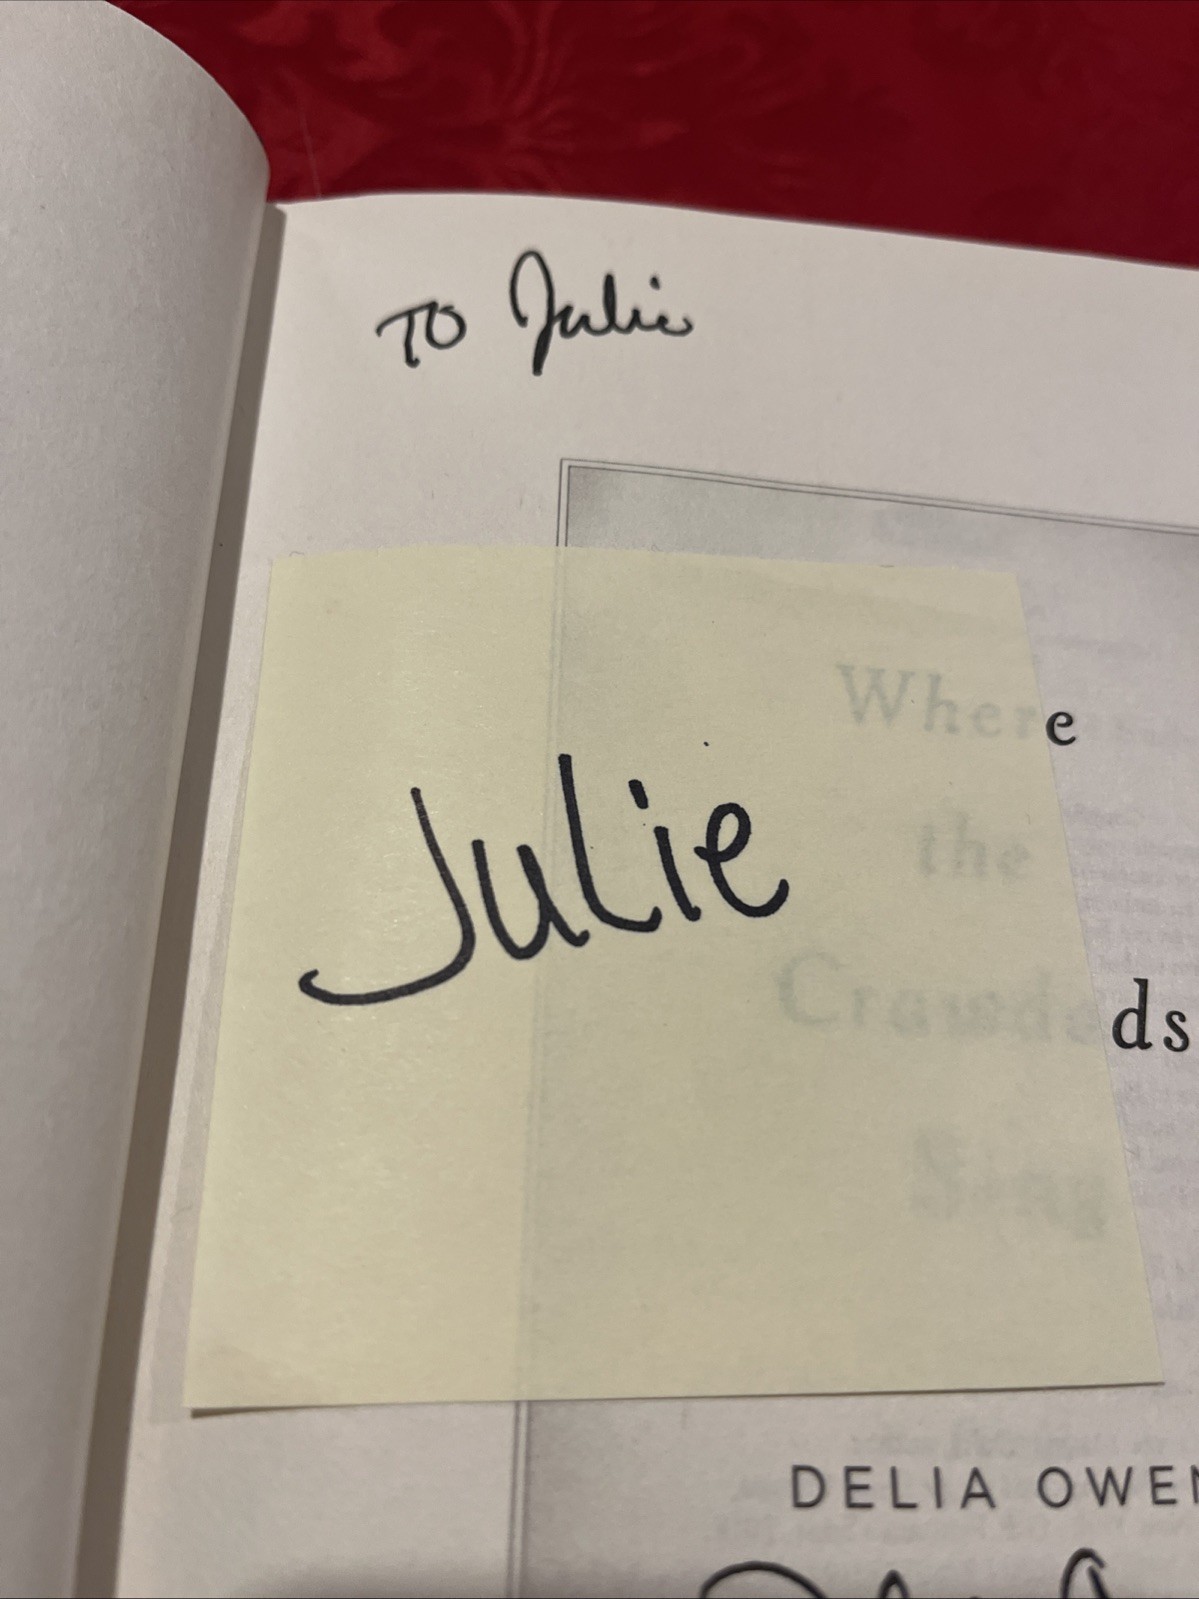 TO Julie
Where
Julie
the
Crawdads
Sing
DELIA OWEN